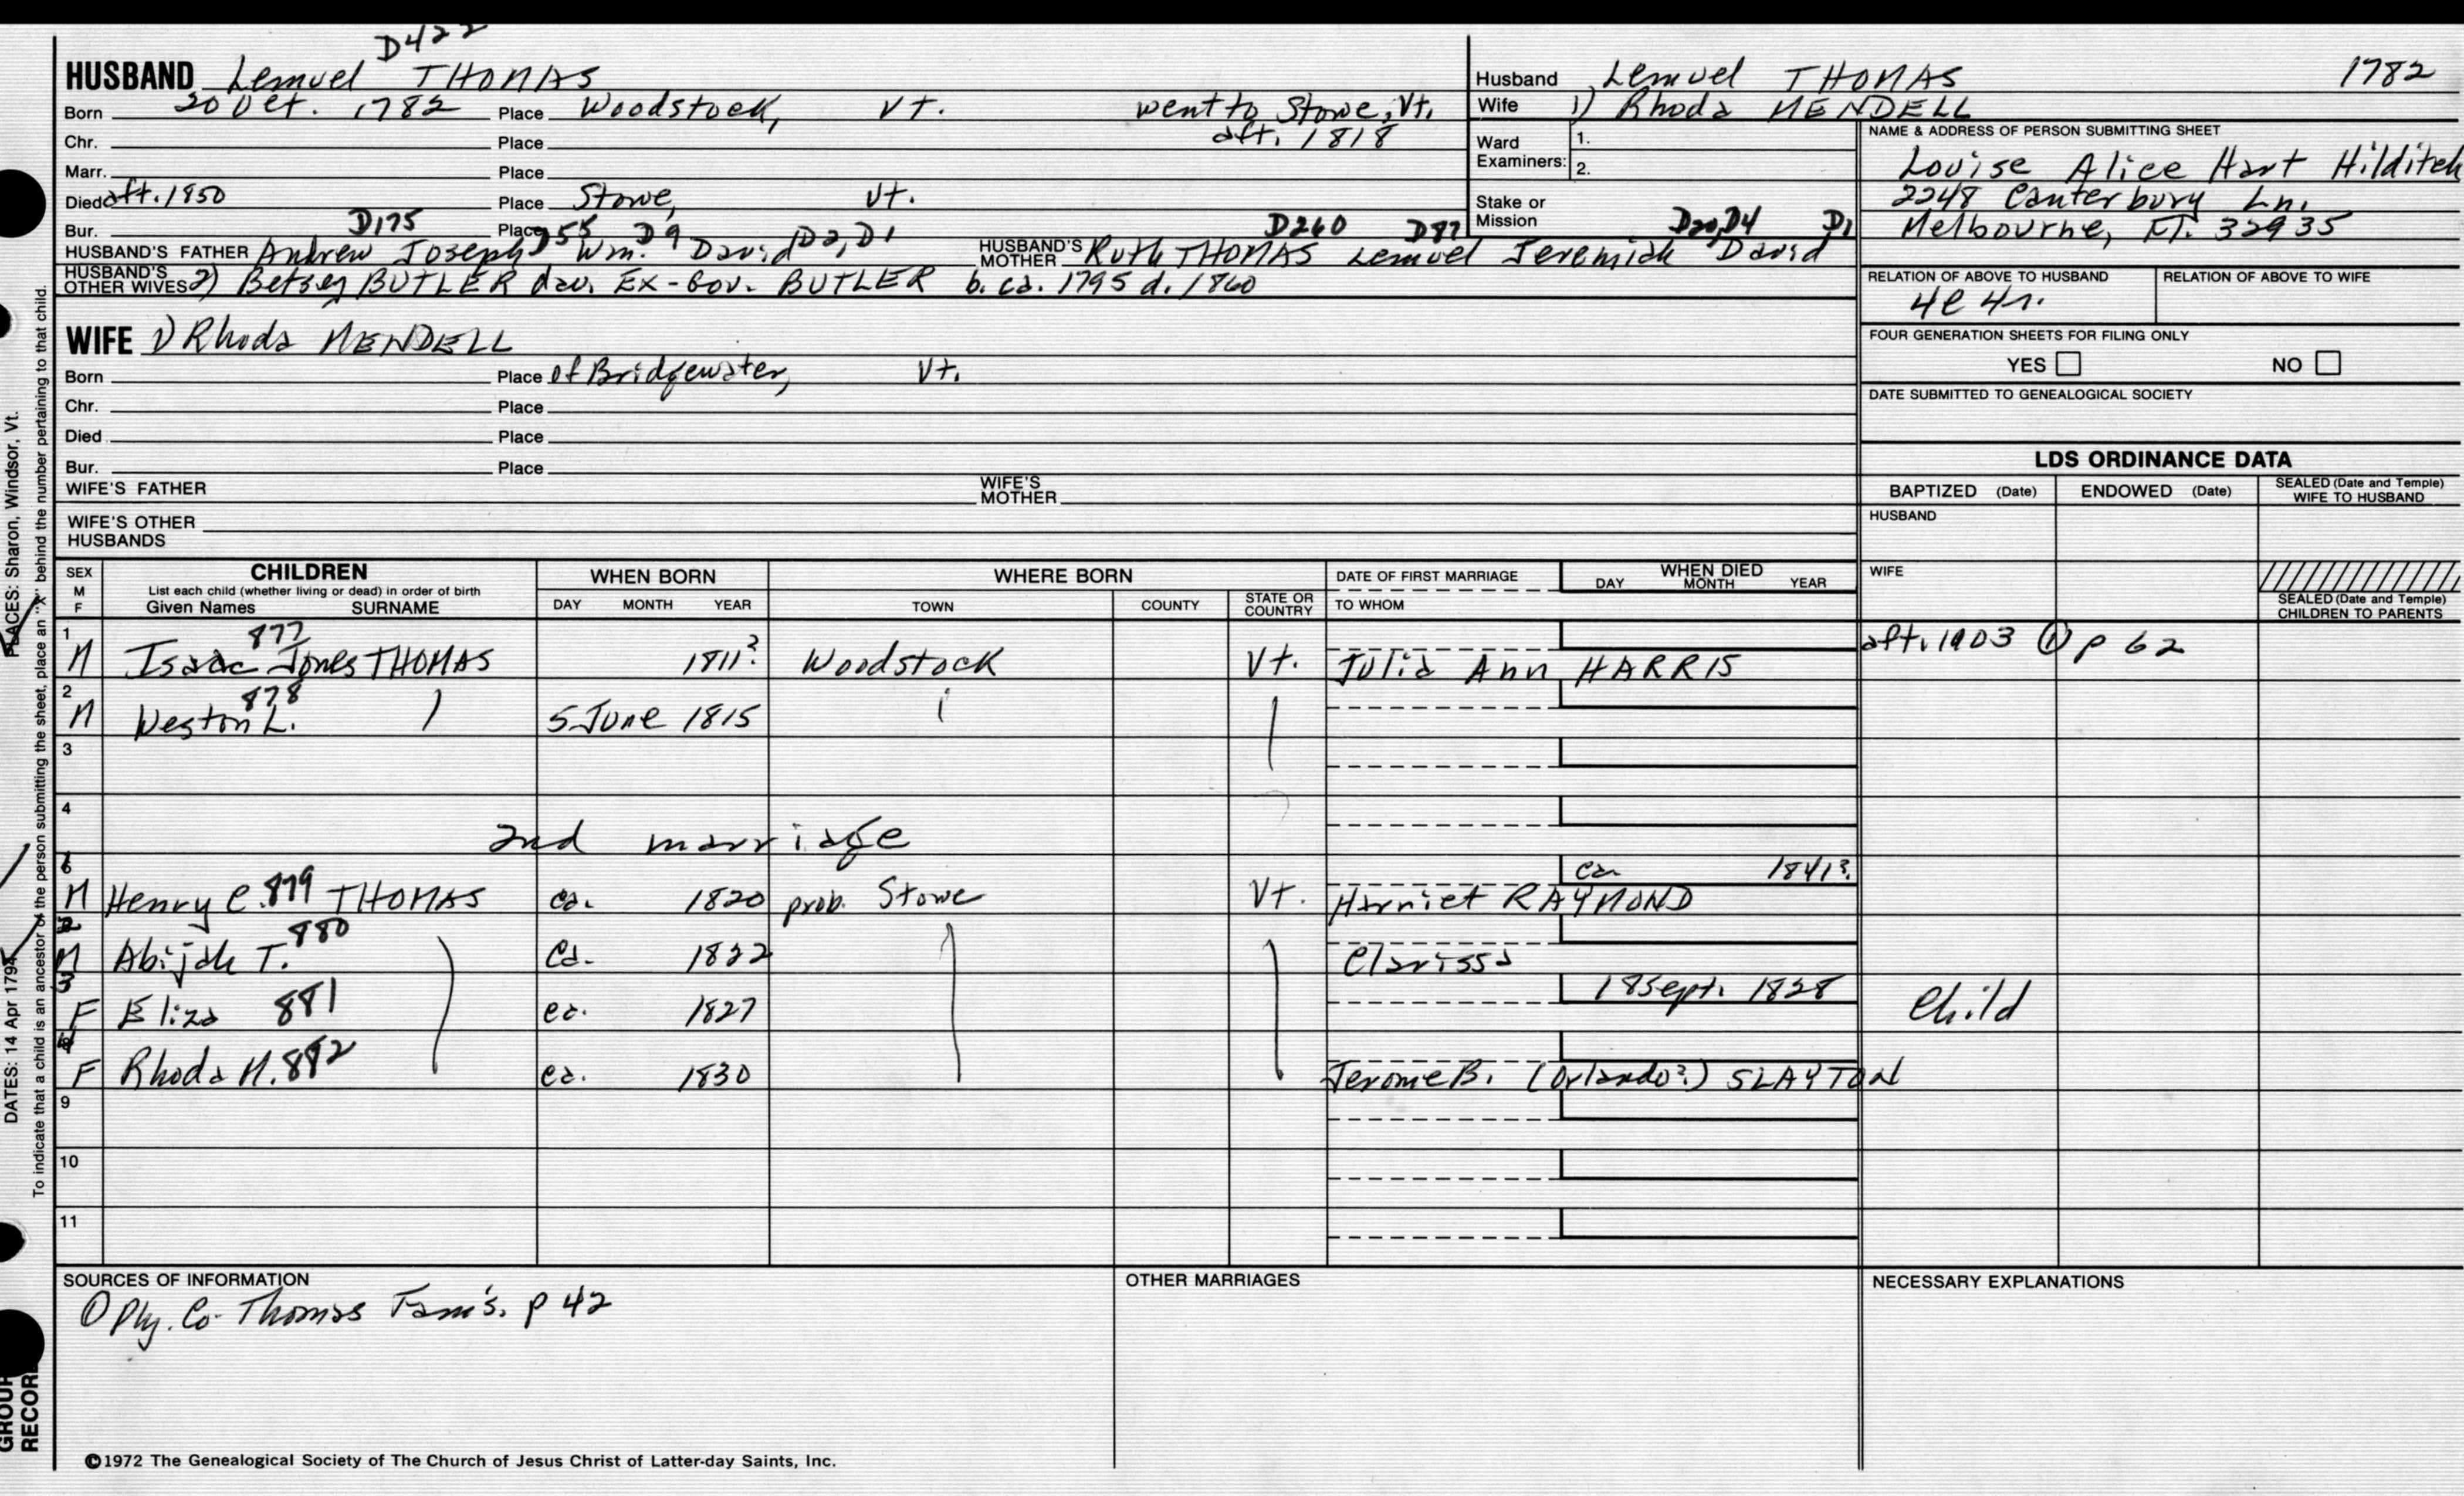 D422
HUSBAND Lemuel THOMAS
Born 20 Oct. 1782 Place Woodstock, Vt. went to Stowe, Vt.
Chr. Place aft. 1818
Marr. Place
Died aft. 1850 Place Stowe, Vt.
Bur. D175 Place D55 D9 D2, D1 D260 D87 D20, D4 D1
HUSBAND'S FATHER Andrew Joseph Wm. David HUSBAND'S MOTHER Ruth THOMAS Lemuel Jeremiah David
HUSBAND'S OTHER WIVES 2) Betsey BUTLER dau. Ex-Gov. BUTLER b. ca. 1795 d. 1860
WIFE 1) Rhoda MENDELL
Born Place of Bridgewater, Vt.
Chr. Place
Died Place
Bur. Place
WIFE'S FATHER WIFE'S MOTHER
WIFE'S OTHER HUSBANDS
Husband Lemuel THOMAS 1782
Wife 1) Rhoda MENDELL
Ward Examiners: 1.
2.
Stake or Mission
NAME & ADDRESS OF PERSON SUBMITTING SHEET
Louise Alice Hart Hilditch
2248 Canterbury Ln.
Melbourne, Fl. 32935
RELATION OF ABOVE TO HUSBAND RELATION OF ABOVE TO WIFE
4c 4r.
FOUR GENERATION SHEETS FOR FILING ONLY
YES NO
DATE SUBMITTED TO GENEALOGICAL SOCIETY
LDS ORDINANCE DATA
BAPTIZED (Date) ENDOWED (Date) SEALED (Date and Temple) WIFE TO HUSBAND
HUSBAND
WIFE
SEALED (Date and Temple)
CHILDREN TO PARENTS
SEX M F CHILDREN WHEN BORN WHERE BORN DATE OF FIRST MARRIAGE WHEN DIED
List each child (whether living or dead) in order of birth
Given Names SURNAME DAY MONTH YEAR TOWN COUNTY STATE OR COUNTRY TO WHOM DAY MONTH YEAR
1 877 aft. 1903 ① p 62
M Isaac Jones THOMAS 1811? Woodstock Vt. Julia Ann HARRIS
2 878
M Weston L. 5 June 1815
3
4
2nd marriage
1 ca. 1841?
M Henry C. 879 THOMAS ca. 1820 prob. Stowe Vt. Harriet RAYMOND
2 880
M Abijah T. ca. 1822 Clarissa
3 18 Sept. 1828
F Eliza 881 ca. 1827 Child
4
F Rhoda M. 882 ca. 1830 Jerome B. (Orlando?) SLAYTON
9
10
11
SOURCES OF INFORMATION OTHER MARRIAGES NECESSARY EXPLANATIONS
① Ply. Co. Thomas Fam's. p 42
©1972 The Genealogical Society of The Church of Jesus Christ of Latter-day Saints, Inc.
PLACES: Sharon, Windsor, Vt.
DATES: 14 Apr 1794
To indicate that a child is an ancestor of the person submitting the sheet, place an "X" behind the number pertaining to that child.
GROUP
RECORD